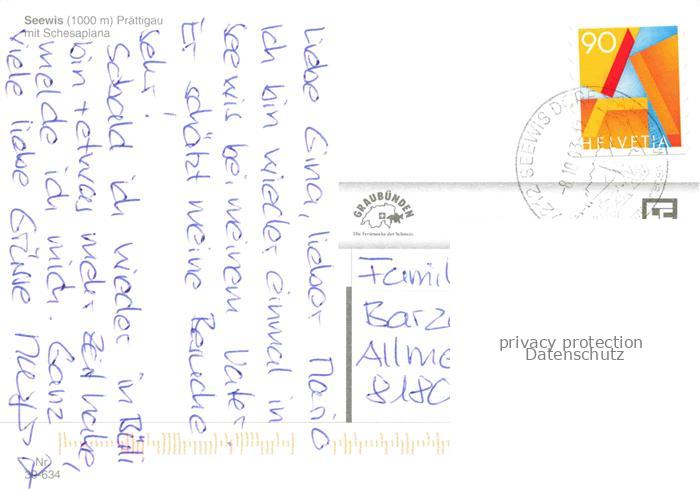 Seewis (1000 m) Prättigau
mit Schesaplana
Liebe Gina, lieber Mario
Ich bin wieder einmal in
Seewis bei meinem Vater.
Er schätzt meine Besuche
sehr!
Sobald ich wieder in Büli
bin + etwas mehr Zeit habe,
melde ich mich. Ganz
viele liebe Grüsse
Nr.
90
HELVETIA
7212 SEEWIS DORF
GRAUBÜNDEN
Die Ferienecke der Schweiz.
Famil
Barz
Allme
8180
privacy protection
Datenschutz